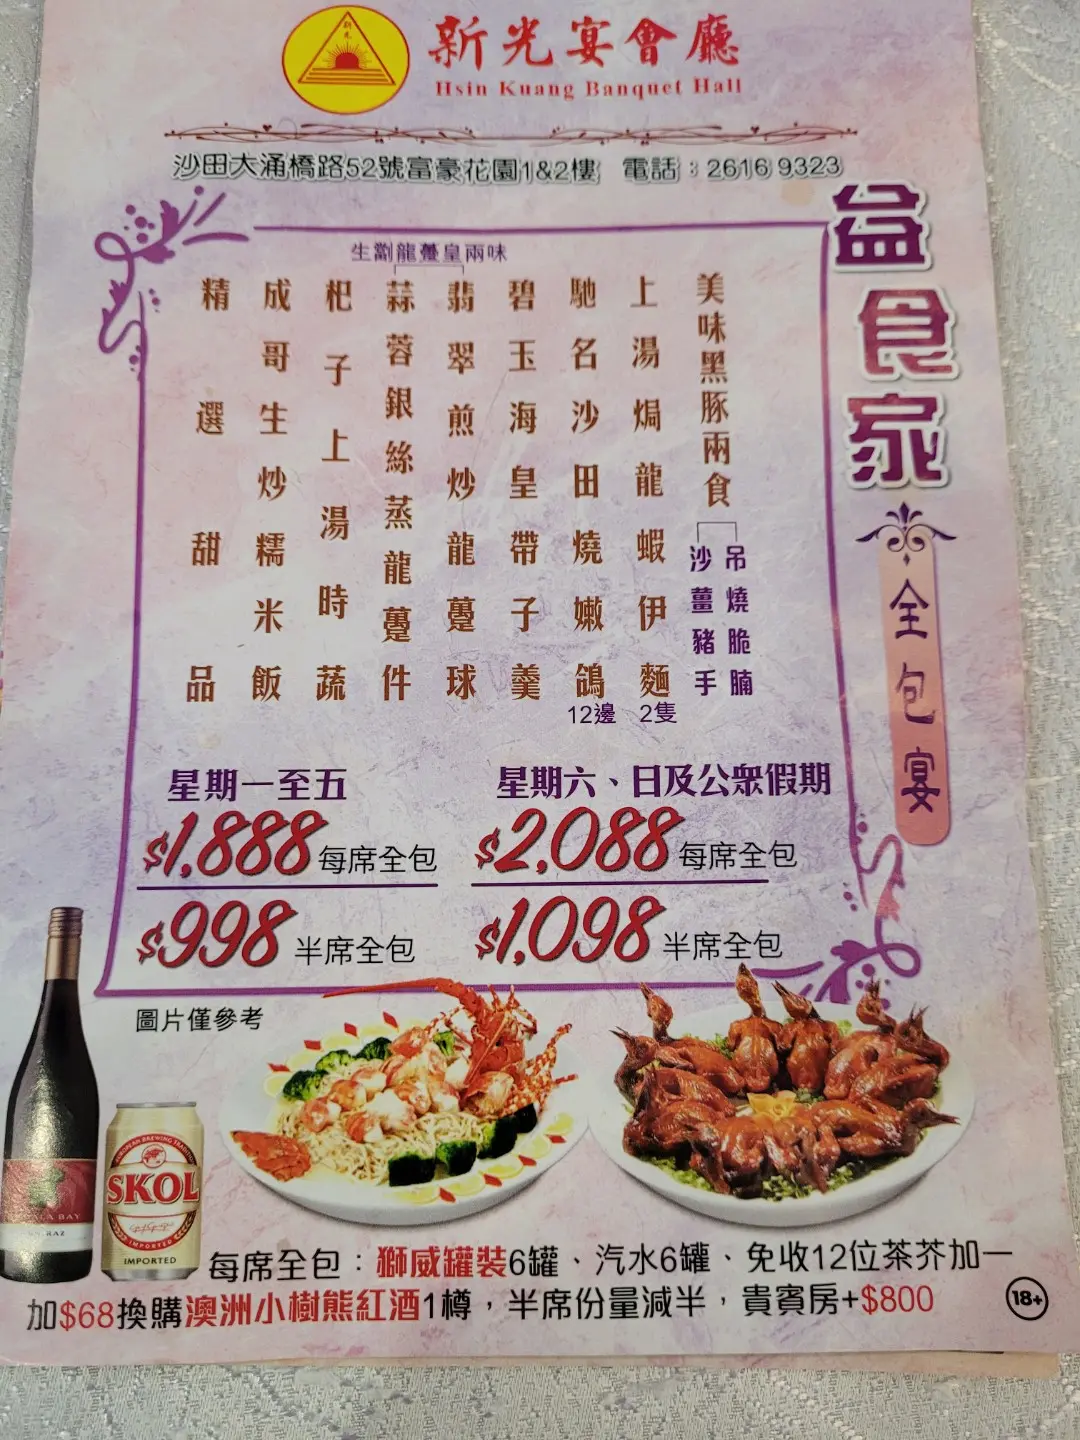 新光
新光宴會廳
Hsin Kuang Banquet Hall
沙田大涌橋路52號富豪花園1&2樓 電話：2616 9323
益食家
全包宴
美味黑豚兩食
吊燒脆腩
沙薑豬手
上湯焗龍蝦伊麵
2隻
馳名沙田燒嫩鴿
12邊
碧玉海皇帶子羹
生劏龍躉皇兩味
翡翠煎炒龍躉球
蒜蓉銀絲蒸龍躉件
杞子上湯時蔬
成哥生炒糯米飯
精選甜品
星期一至五
$1,888 每席全包
$998 半席全包
星期六、日及公眾假期
$2,088 每席全包
$1,098 半席全包
圖片僅參考
ALA BAY
RAZ
EUROPEAN BREWING
SKOL
IMPORTED
IMPORTED
每席全包：獅威罐裝6罐、汽水6罐、免收12位茶芥加一
加$68換購澳洲小樹熊紅酒1樽，半席份量減半，貴賓房+$800
18+